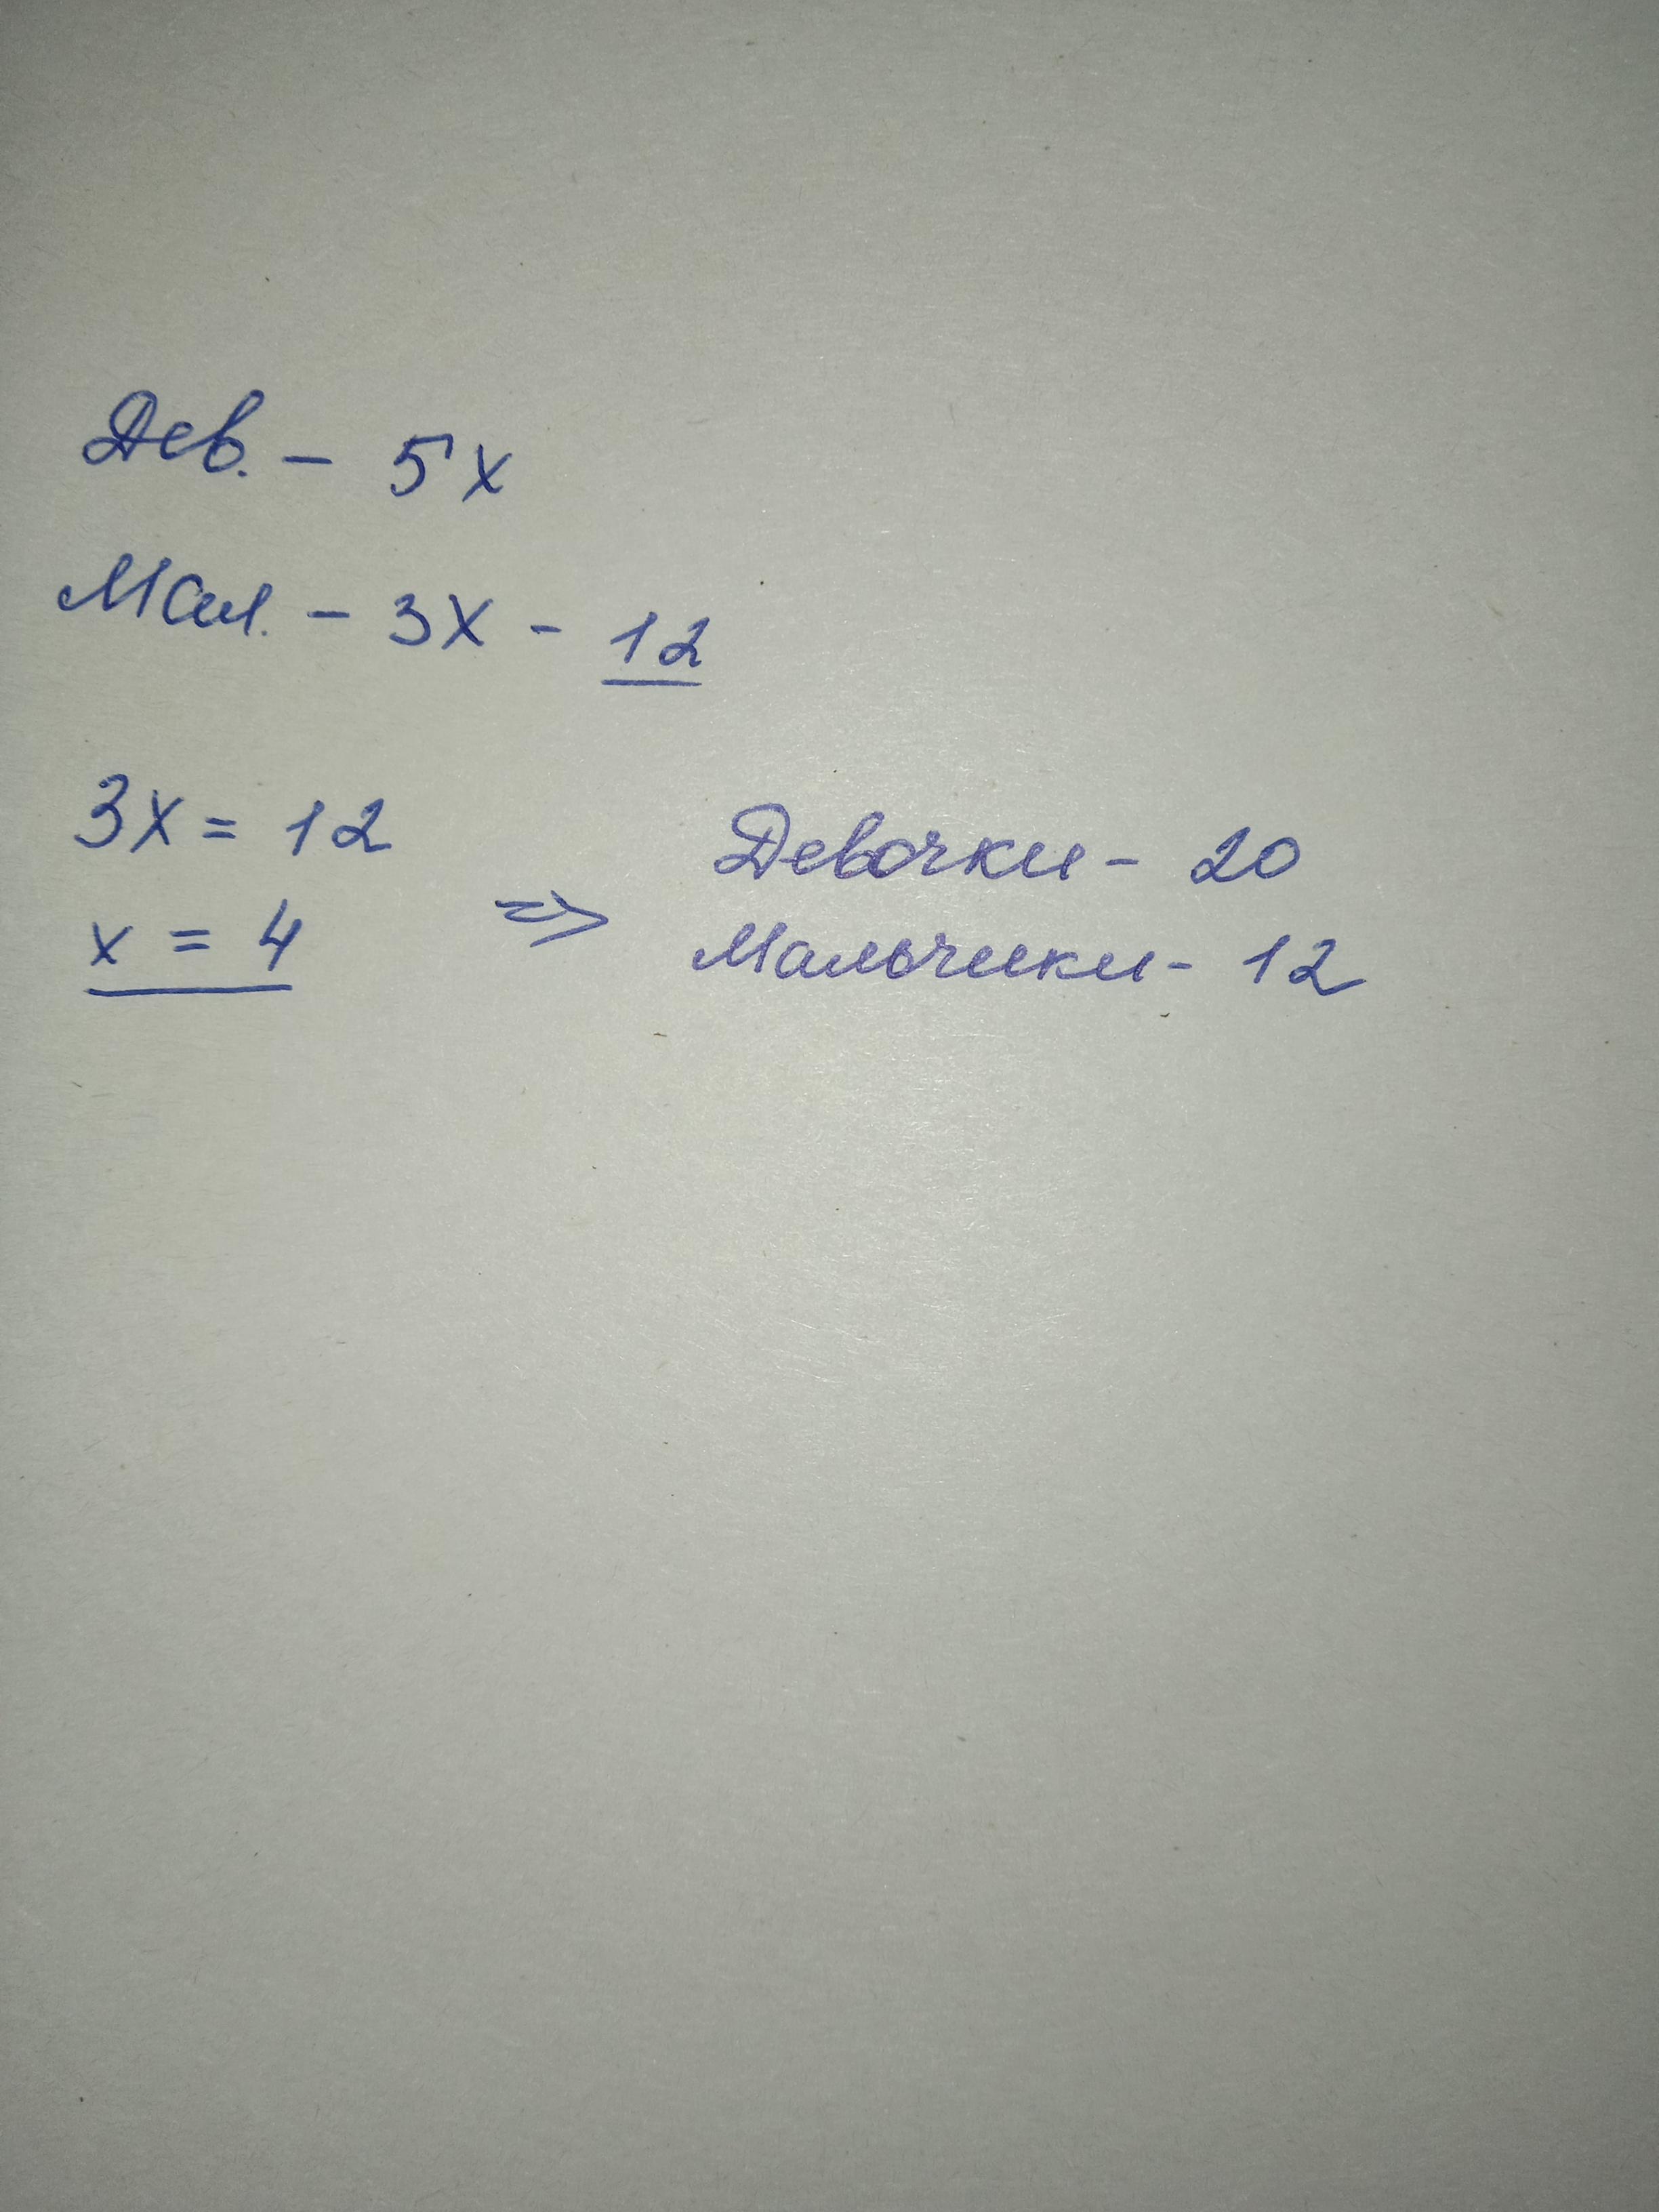 Дев. - 5x
Мал. - 3x - 12
3x = 12
x = 4
=>
Девочки - 20
Мальчики - 12